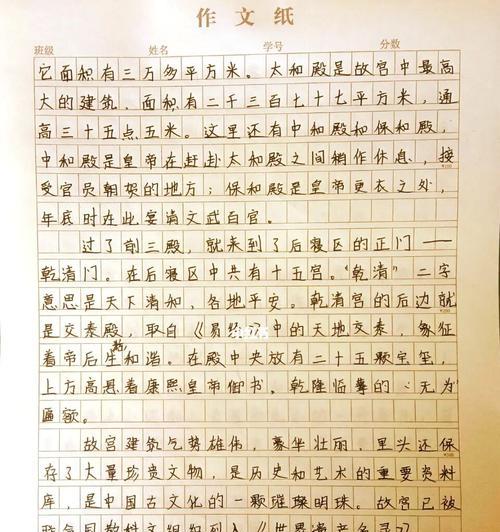 作文纸
班级 姓名 学号 分数
它面积有三万多平方米。太和殿是故宫中最高
大的建筑,面积有二千三百七十七平方米,通
高三十五点五米。这里还有中和殿和保和殿,
中和殿是皇帝在赶赴太和殿之间稍作休息,接
受官员朝贺的地方;保和殿是皇帝更衣之处,
年底时在此宴请文武百官。
过了前三殿,就来到了后寝区的正门——
乾清门。在后寝区中共有十五宫。“乾清”二字
意思是天下清和,各地平安。乾清宫的后边就
是交泰殿,取自《易经》中的天地交泰,象征
着帝后生和谐。在殿中央放有二十五颗宝玺,
上方高悬着康熙皇帝御书,乾隆临摹的:无为
匾额。
故宫建筑气势雄伟,豪华壮丽,里头还保
存了大量珍贵文物,是历史和艺术的重要资料
库,是中国古文化的一颗璀璨明珠。故宫已被